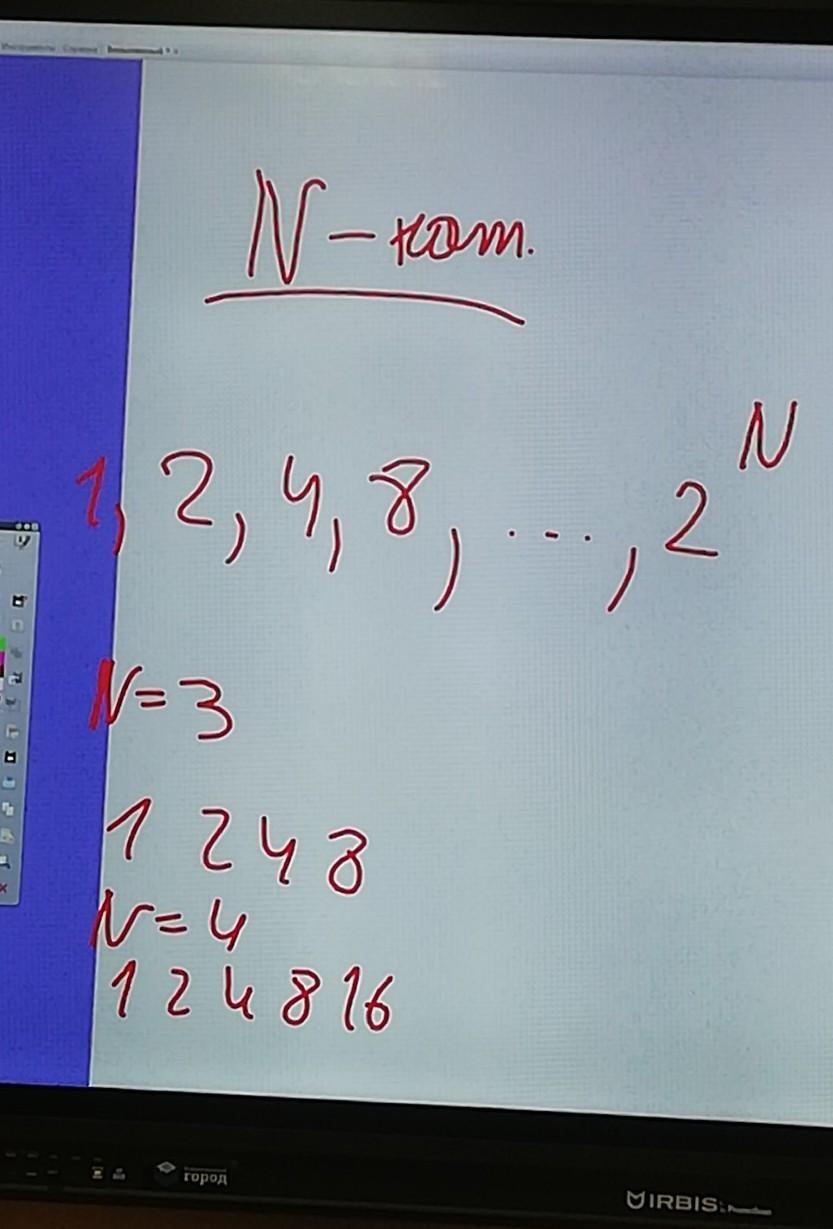 Инструменты Справка
N - нат.
1, 2, 4, 8, ..., 2^N
N = 3
1 2 4 8
N = 4
1 2 4 8 16
город
IRBIS